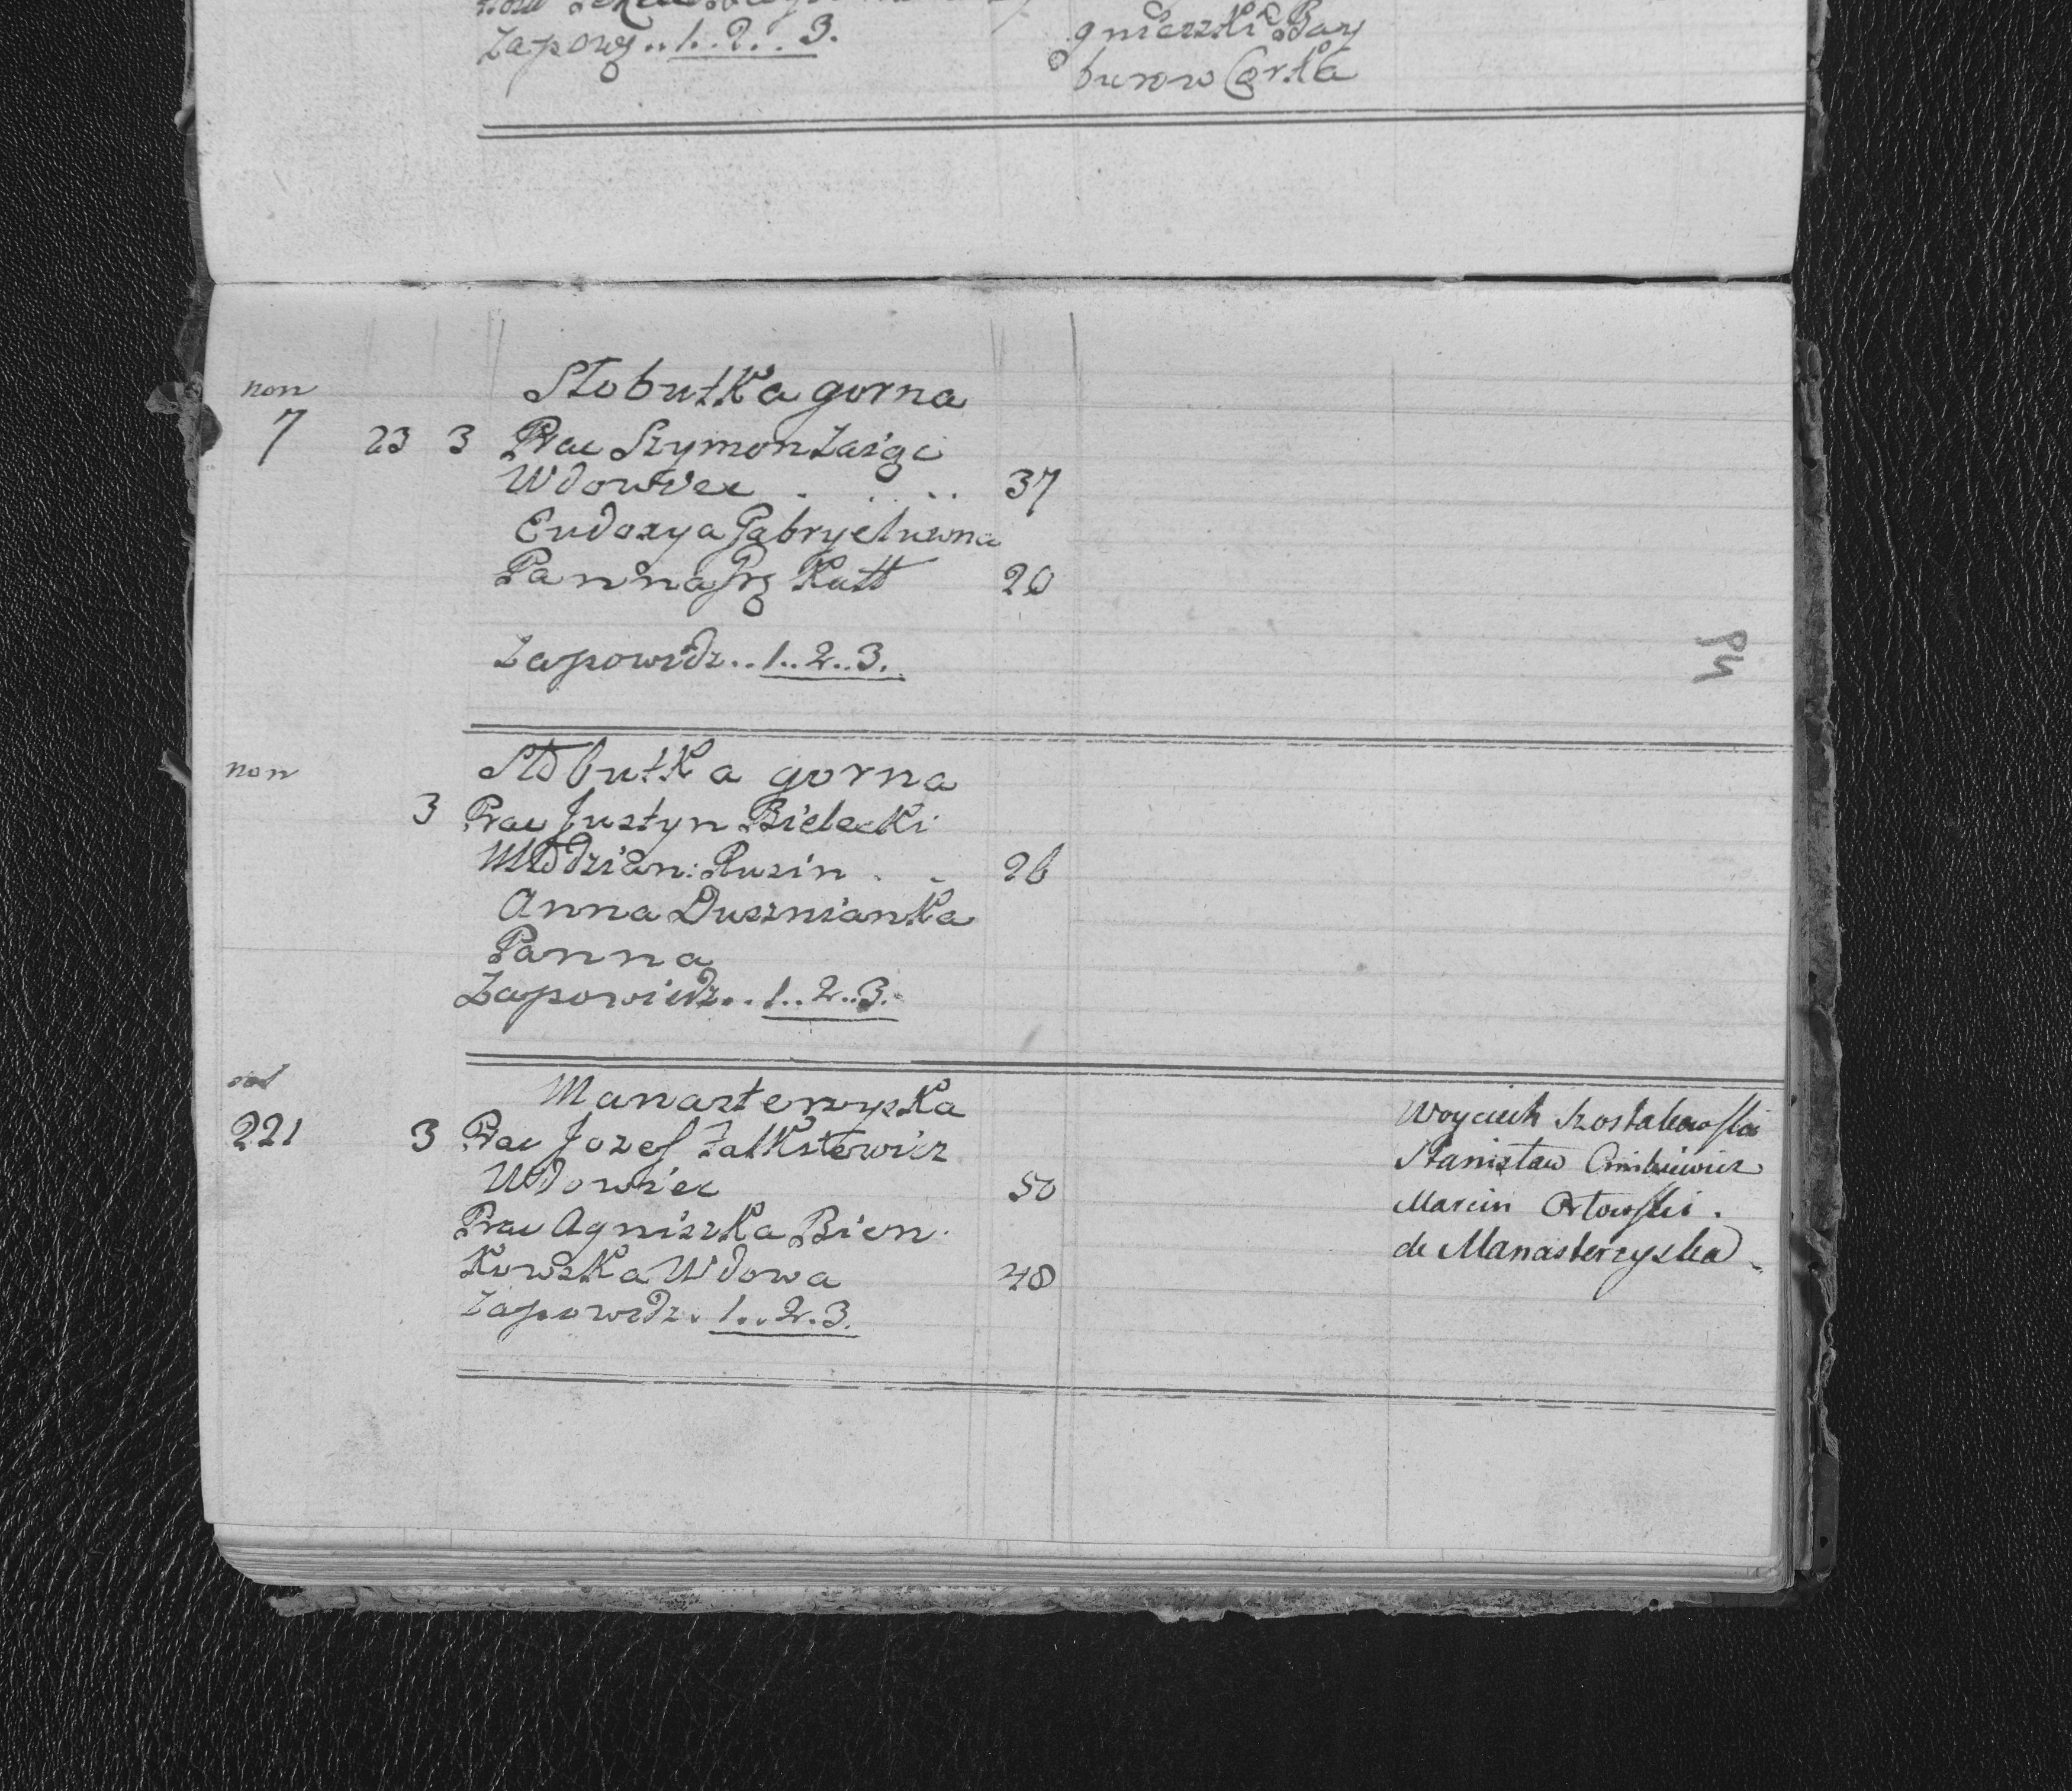 Zapowg..1..2..3.
gnieszki Bay
burow Corka
non
Słobutka gorna
7 23 3 Prac Szymon Zaigi
Wdowiec . . . . 37
Eudoxya Gabryeluwna
Panna Rutt 20
Zapowidz..1..2..3.
non
Słobutka gorna
3 Prac Justyn Bielecki
Młodzian: Rusin . . 26
Anna Dusznianka
Panna
Zapowiedz..1..2..3.
Manasterzyska
221 3 Prac Jozef Zalkiewicz
Wdowiec 50
Prac Agniszka Bien
kowska Wdowa 48
Zapowidz. 1..2.3.
Woyciech Szostakowski
Stanisław
Marcin Orłowski.
de Manasterzyska